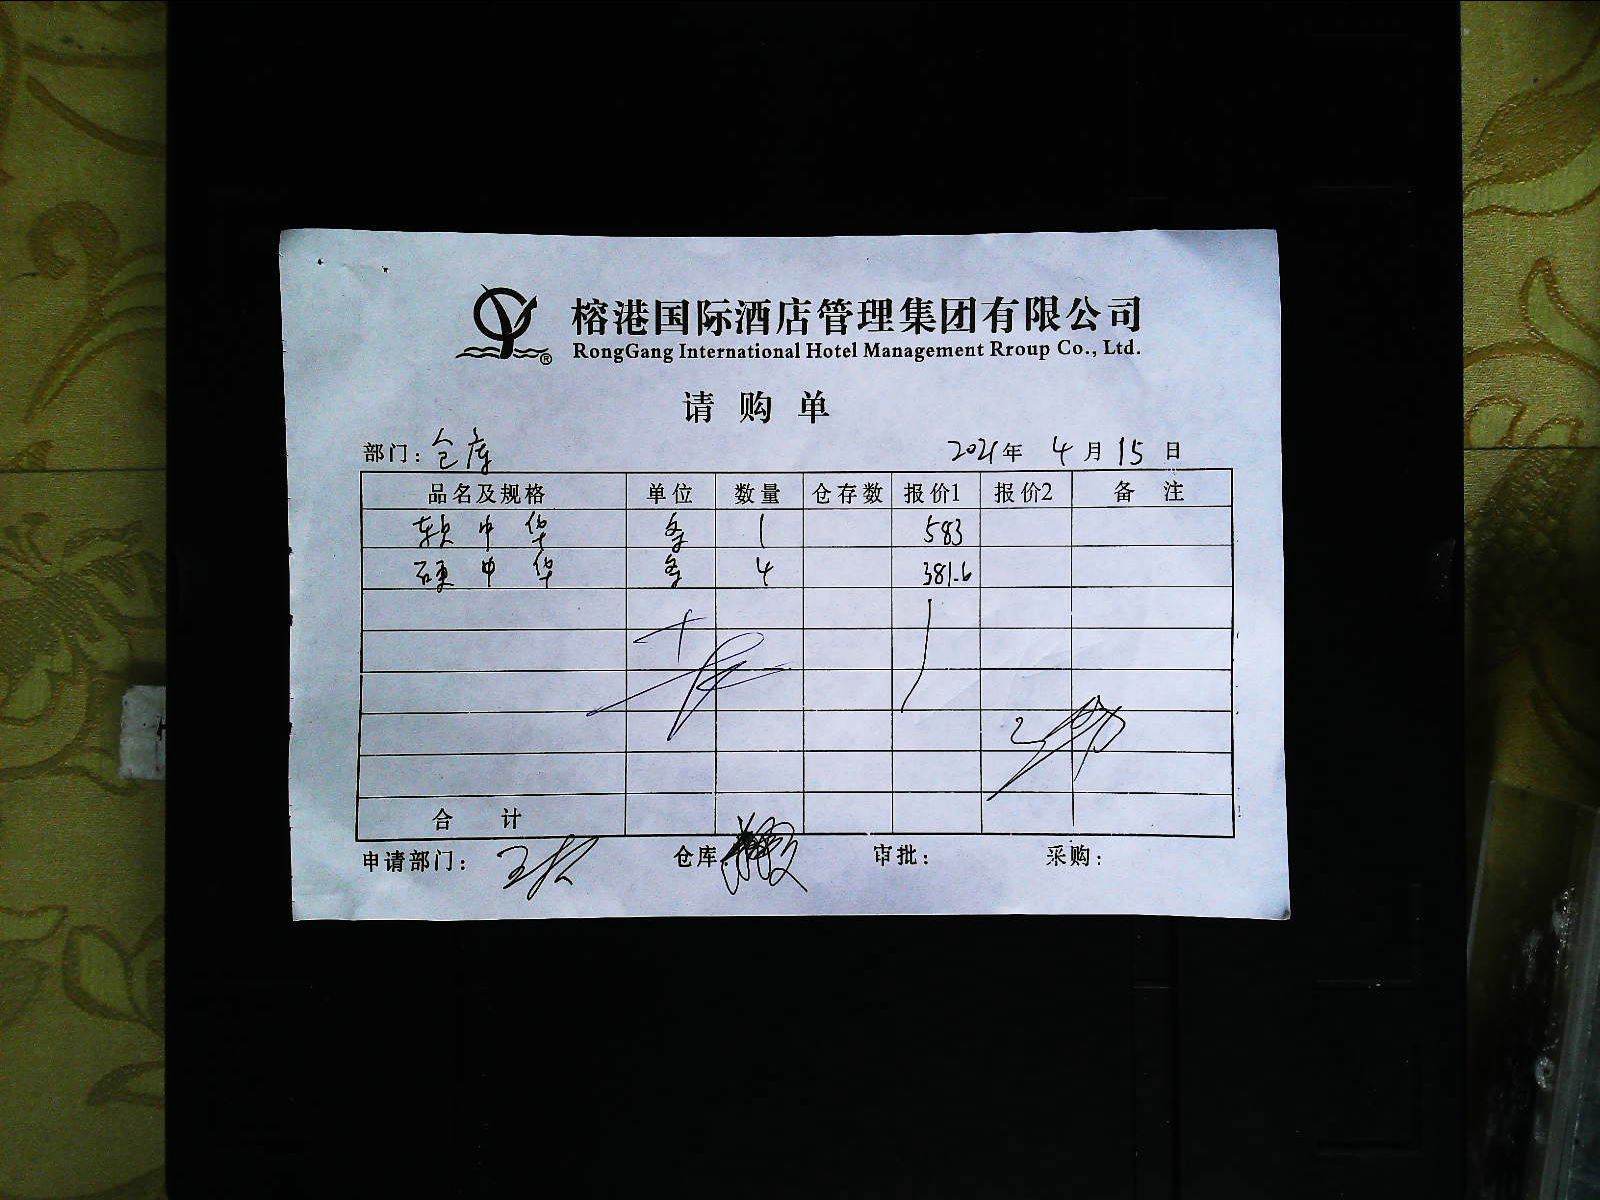 榕港国际酒店管理集团有限公司
RongGang International Hotel Management Rroup Co., Ltd.
请购单
部门: 仓库 2021年 4月 15日
品名及规格 单位 数量 仓存数 报价1 报价2 备注
软中华 条 1 583
硬中华 条 4 381.6
合计
申请部门: 仓库: 审批: 采购: